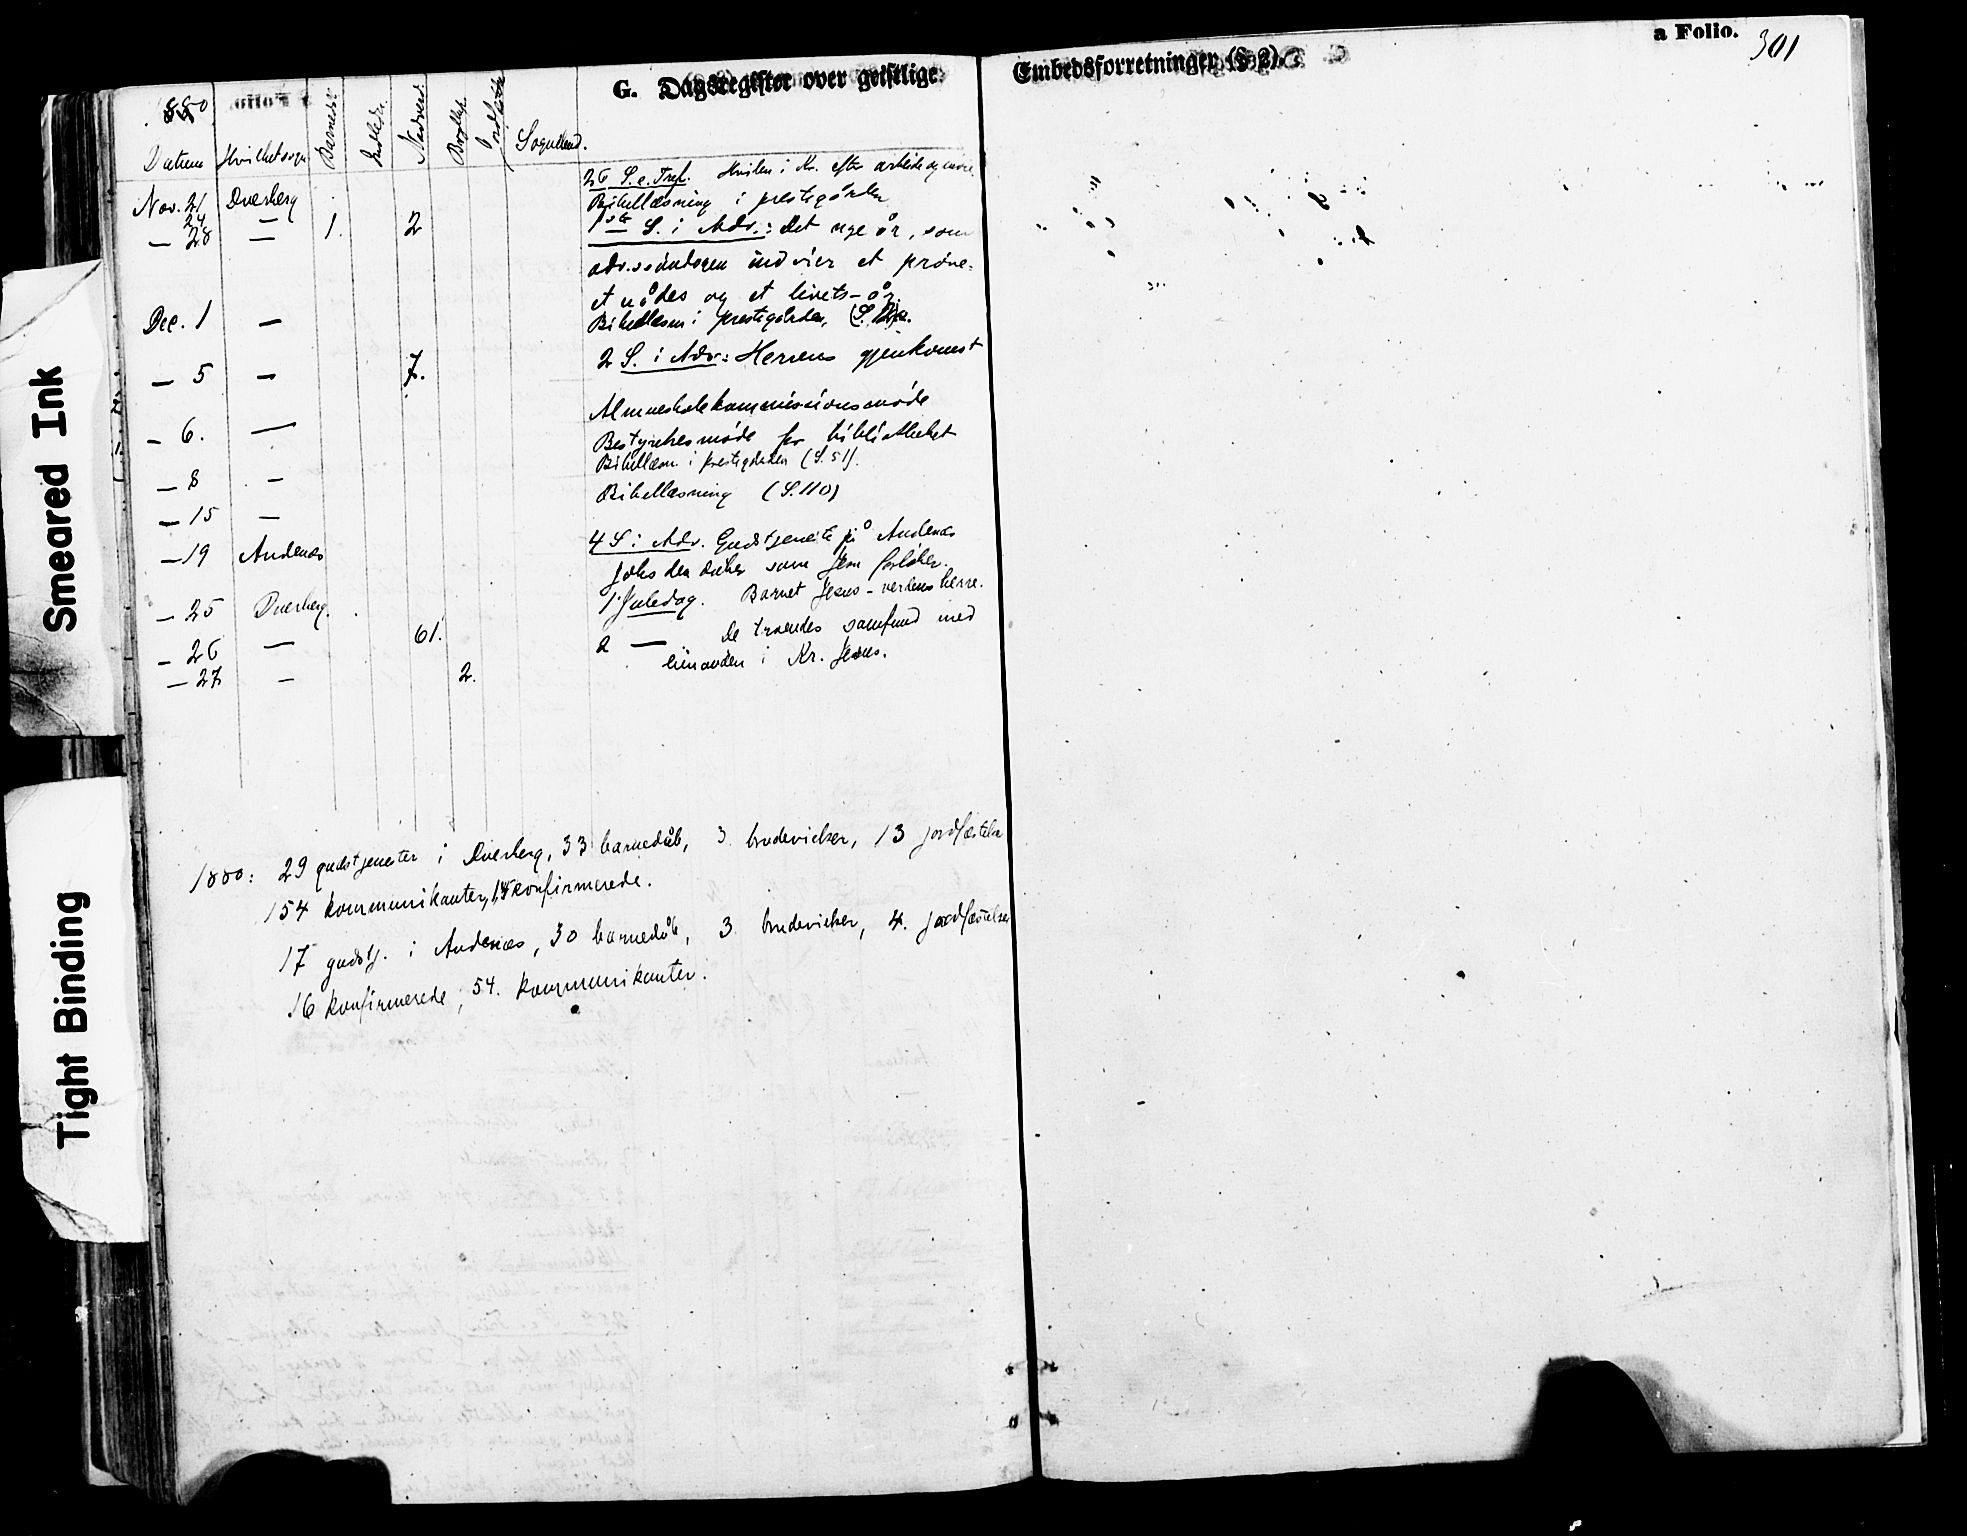 G. Dagsregister over geistlige Embedsforretninger (§ 2).
a Folio. 301
1880.
Datum Hvilket sogn Barnedåb Nadverd Bryllup Sognebud.
Nov. 21 Dverberg 26 S. e. Tref. Hvilen i Kr. efter arbeide og møie
24 — Bibellæsning i prestegården
— 28 — 1. 2 1ste S. i Adv.: Det nye år, som
adv.søndagen indvier et prøve-
et nådes og et livets-år.
Dec. 1 — Bibellæsn i prestegården,
— 5 — 7. 2 S. i Adv.: Herrens gjenkomst
Almueskolekommissionsmøde
— 6. — Bestyrelsesmøde for bibliotheket
— 8 — Bibellæsn. i prestegården (S. 51).
— 15 — Bibellæsning (S. 110)
— 19 Andenæs 4 S i Adv. Gudstjeneste på Andenæs
Johs den døber som Jesu forløber.
— 25 Dverberg. 1 Juledag. Barnet Jesus - verdens herre.
— 26 — 61. 2 — De troendes samfund med
hinanden i Kr. Jesus.
— 27 — 2.
1880: 29 gudstjenester i Dverberg, 33 barnedåb, 3 brudevielser, 13 jordfæstelser
154 kommunikanter, konfirmerede.
17 gudstj. i Andenæs, 30 barnedåb, 3 brudevielser, 4. jordfæstelser
16 konfirmerede, 54. kommunikanter.
Smeared Ink
Tight Binding